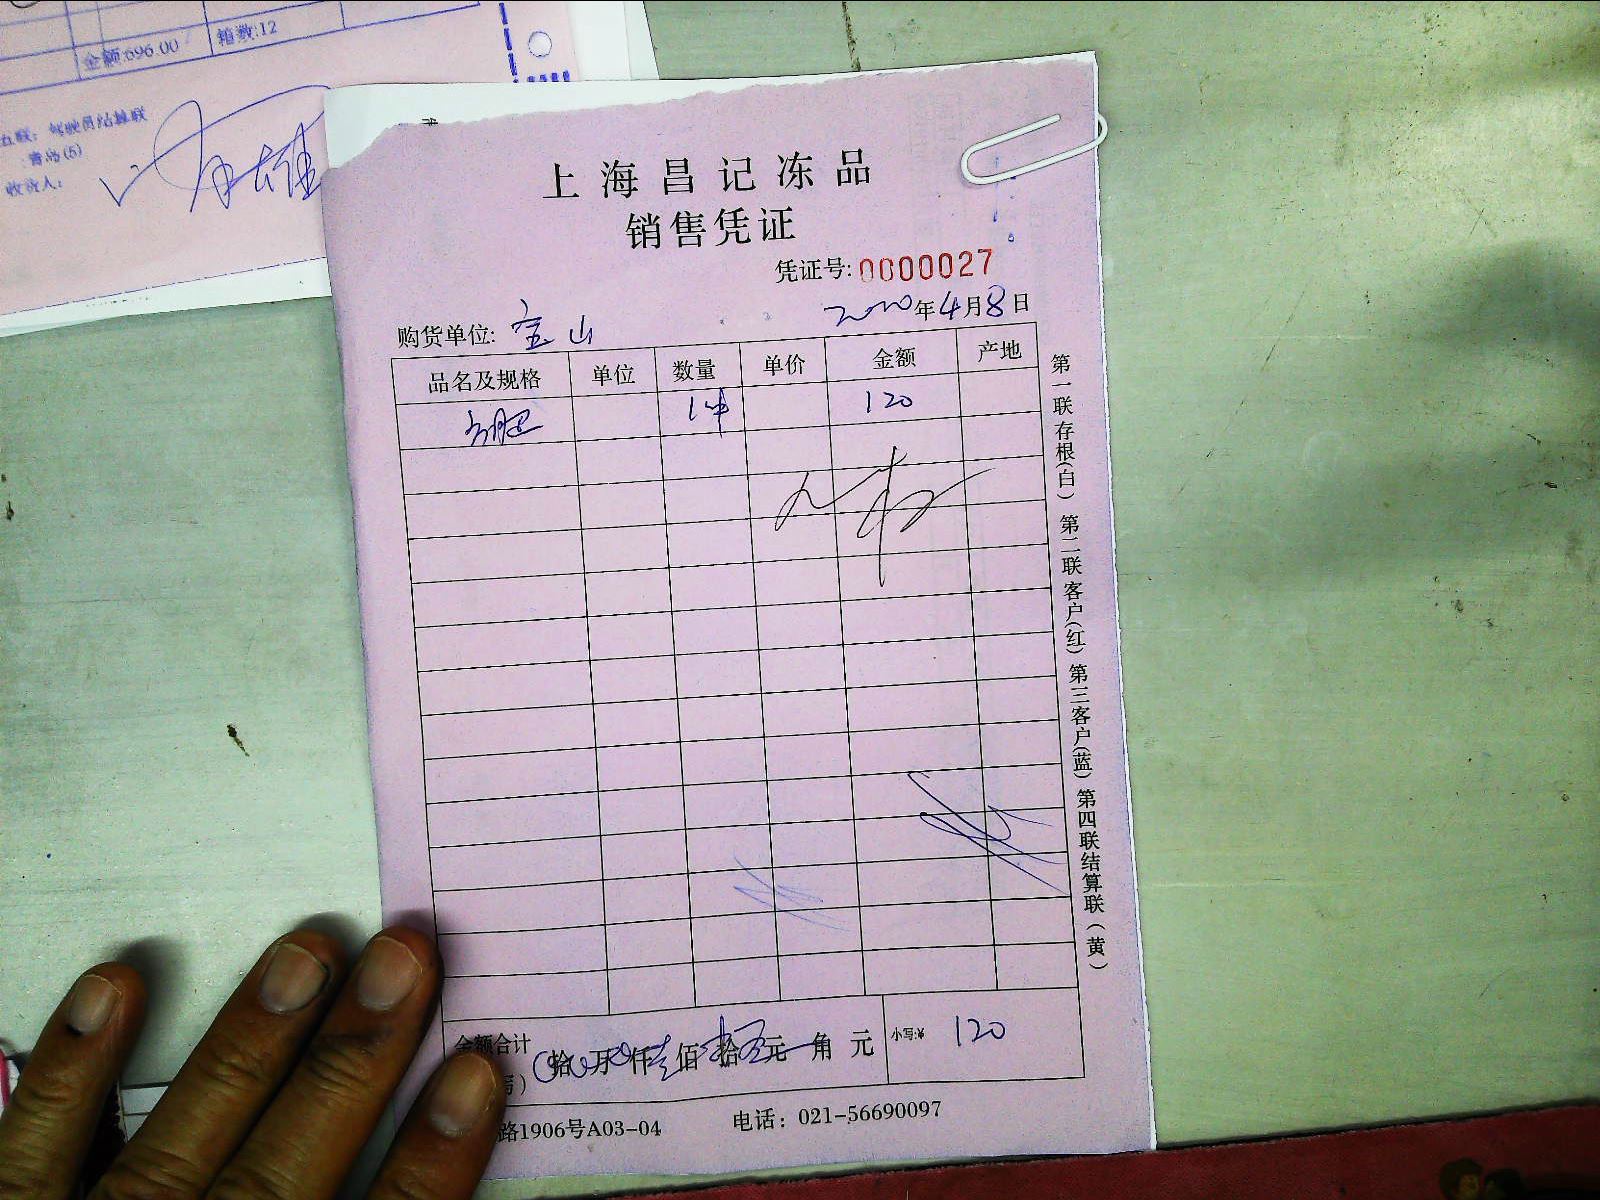 金额:696.00 箱数:12
五联：驾驶员结算联
青岛(5)
收货人：
上海昌记冻品
销售凭证
凭证号:0000027
购货单位: 宝山 2020年4月8日
品名及规格 单位 数量 单价 金额 产地
1件 120
第一联存根(白) 第二联客户(红) 第三客户(蓝) 第四联结算联(黄)
金额合计 拾 万 仟 佰 拾 元 角 元 小写:¥ 120
写)
路1906号A03-04 电话：021-56690097